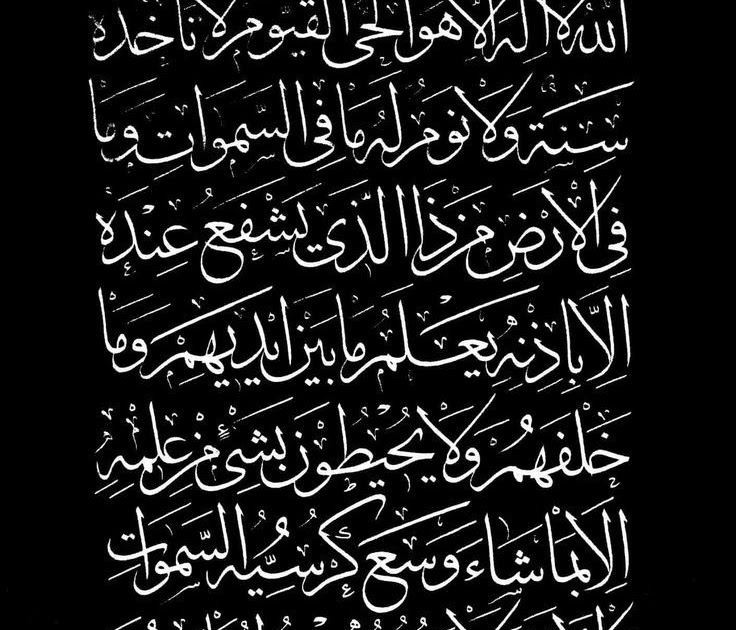 الله لا اله الا هو الحي القيوم لا تأخذه
سنة ولا نوم له ما في السموات وما
في الارض من ذا الذي يشفع عنده
الا باذنه يعلم ما بين ايديهم وما
خلفهم ولا يحيطون بشئ من علمه
الا بما شاء وسع كرسيه السموات